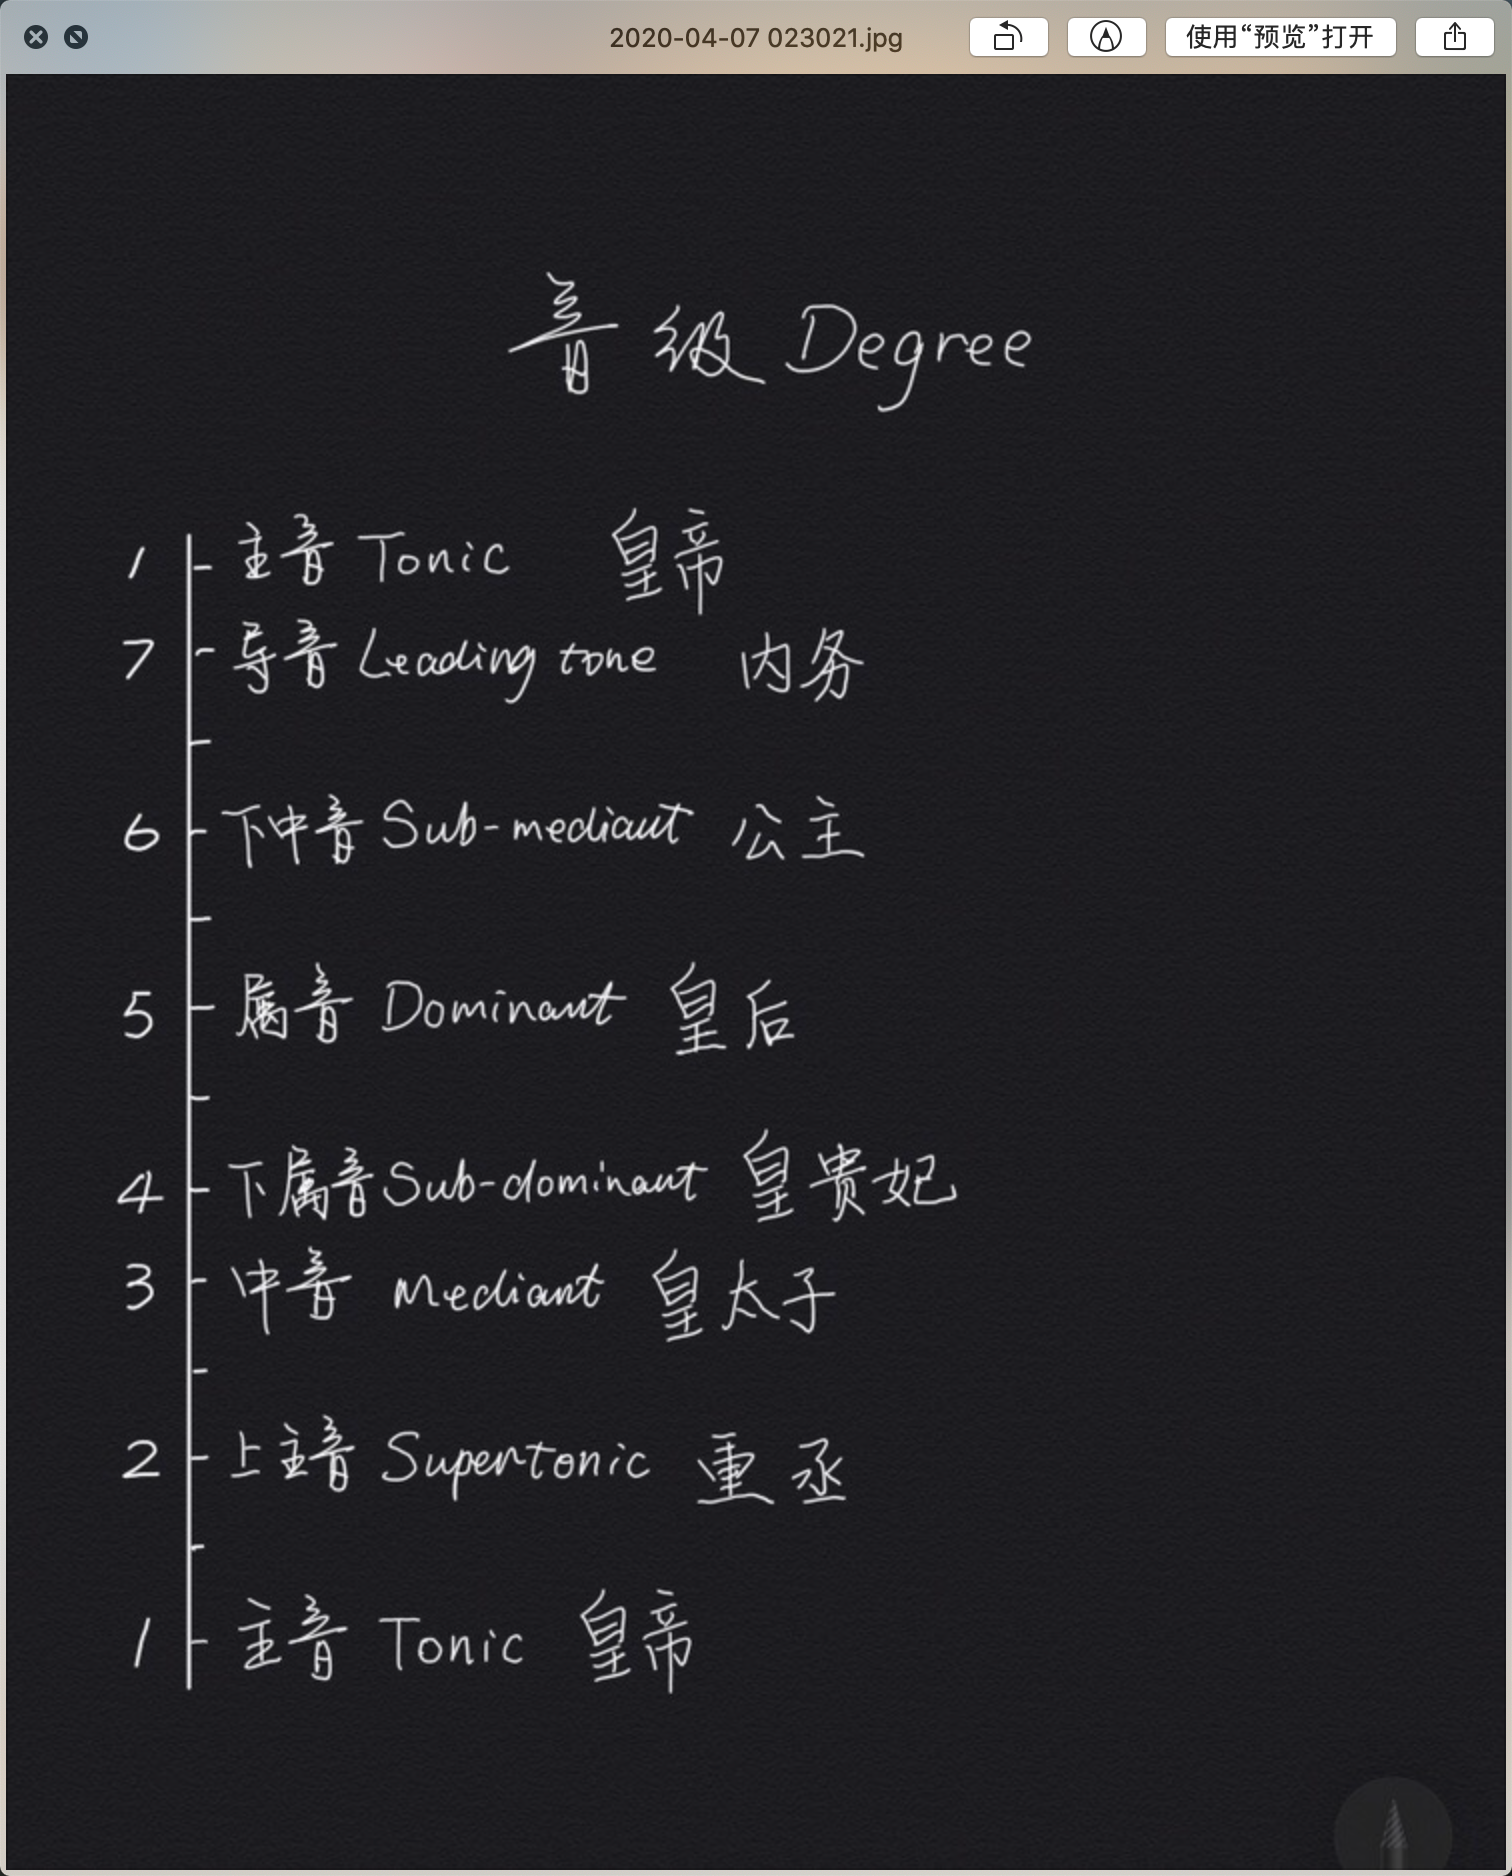 2020-04-07 023021.jpg 使用“预览”打开
音级 Degree
1 主音 Tonic 皇帝
7 导音 Leading tone 内务
6 下中音 Sub-mediant 公主
5 属音 Dominant 皇后
4 下属音 Sub-dominant 皇贵妃
3 中音 Mediant 皇太子
2 上主音 Supertonic 重丞
1 主音 Tonic 皇帝